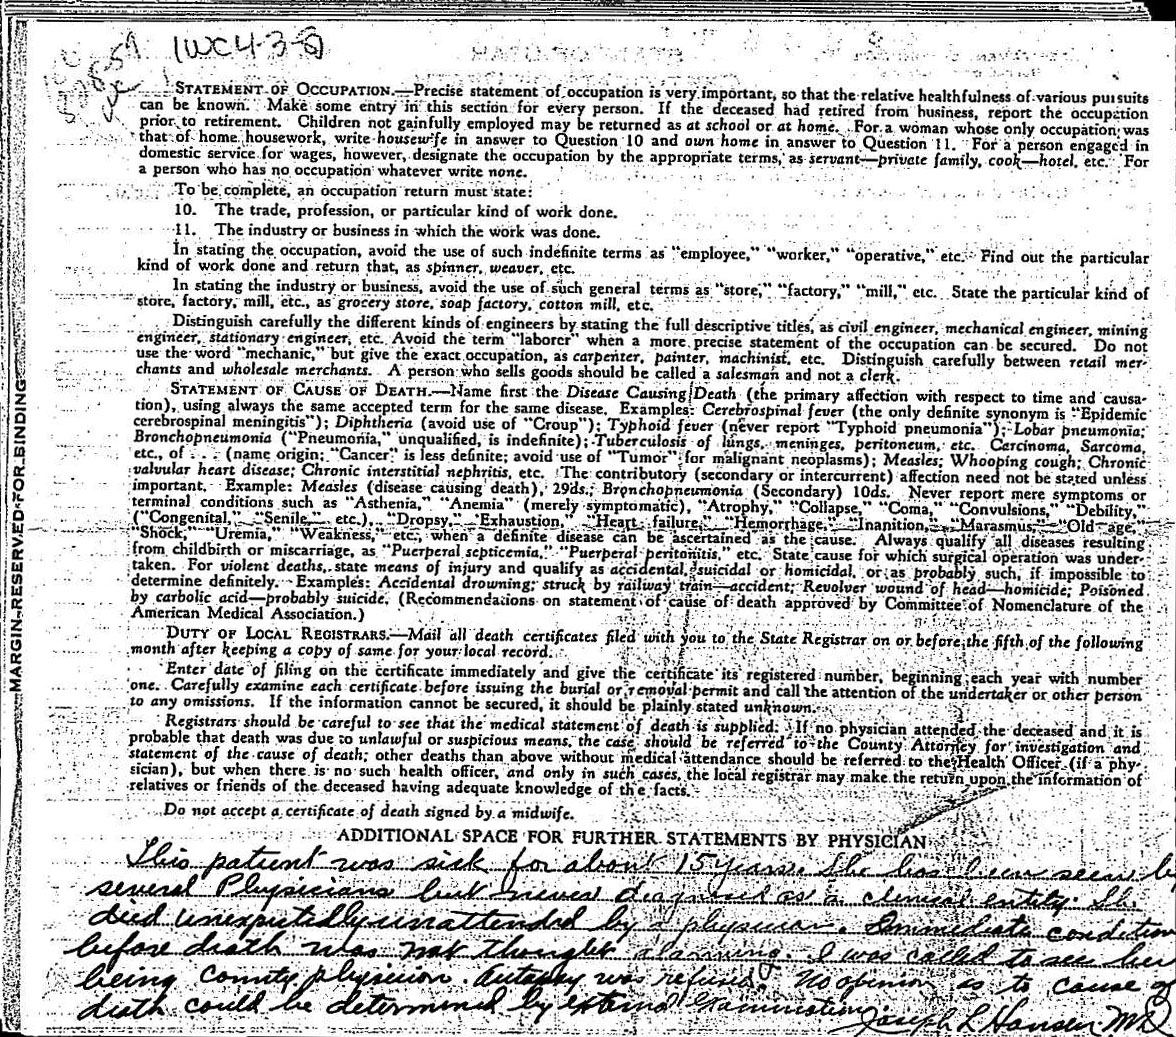 1WC4-3-0
STATEMENT OF OCCUPATION.—Precise statement of occupation is very important, so that the relative healthfulness of various pursuits
can be known. Make some entry in this section for every person. If the deceased had retired from business, report the occupation
prior to retirement. Children not gainfully employed may be returned as at school or at home. For a woman whose only occupation was
that of home housework, write housewife in answer to Question 10 and own home in answer to Question 11. For a person engaged in
domestic service for wages, however, designate the occupation by the appropriate terms, as servant—private family, cook—hotel, etc. For
a person who has no occupation whatever write none.
To be complete, an occupation return must state:
10. The trade, profession, or particular kind of work done.
11. The industry or business in which the work was done.
In stating the occupation, avoid the use of such indefinite terms as "employee," "worker," "operative," etc. Find out the particular
kind of work done and return that, as spinner, weaver, etc.
In stating the industry or business, avoid the use of such general terms as "store," "factory," "mill," etc. State the particular kind of
store, factory, mill, etc., as grocery store, soap factory, cotton mill, etc.
Distinguish carefully the different kinds of engineers by stating the full descriptive titles, as civil engineer, mechanical engineer, mining
engineer, stationary engineer, etc. Avoid the term "laborer" when a more precise statement of the occupation can be secured. Do not
use the word "mechanic," but give the exact occupation, as carpenter, painter, machinist, etc. Distinguish carefully between retail mer-
chants and wholesale merchants. A person who sells goods should be called a salesman and not a clerk.
STATEMENT OF CAUSE OF DEATH.—Name first the Disease Causing Death (the primary affection with respect to time and causa-
tion), using always the same accepted term for the same disease. Examples: Cerebrospinal fever (the only definite synonym is "Epidemic
cerebrospinal meningitis"); Diphtheria (avoid use of "Croup"); Typhoid fever (never report "Typhoid pneumonia"); Lobar pneumonia;
Bronchopneumonia ("Pneumonia," unqualified, is indefinite); Tuberculosis of lungs, meninges, peritoneum, etc. Carcinoma, Sarcoma,
etc., of . . . (name origin; "Cancer" is less definite; avoid use of "Tumor" for malignant neoplasms); Measles; Whooping cough; Chronic
valvular heart disease; Chronic interstitial nephritis, etc. The contributory (secondary or intercurrent) affection need not be stated unless
important. Example: Measles (disease causing death), 29ds.; Bronchopneumonia (Secondary) 10ds. Never report mere symptoms or
terminal conditions such as "Asthenia," "Anemia" (merely symptomatic), "Atrophy," "Collapse," "Coma," "Convulsions," "Debility,"
("Congenital," "Senile," etc.), "Dropsy," "Exhaustion," "Heart failure," "Hemorrhage," "Inanition," "Marasmus," "Old age,"
"Shock," "Uremia," "Weakness," etc., when a definite disease can be ascertained as the cause. Always qualify all diseases resulting
from childbirth or miscarriage, as "Puerperal septicemia," "Puerperal peritonitis," etc. State cause for which surgical operation was under-
taken. For violent deaths, state means of injury and qualify as accidental, suicidal or homicidal, or as probably such, if impossible to
determine definitely. Examples: Accidental drowning; struck by railway train—accident; Revolver wound of head—homicide; Poisoned
by carbolic acid—probably suicide. (Recommendations on statement of cause of death approved by Committee of Nomenclature of the
American Medical Association.)
DUTY OF LOCAL REGISTRARS.—Mail all death certificates filed with you to the State Registrar on or before the fifth of the following
month after keeping a copy of same for your local record.
Enter date of filing on the certificate immediately and give the certificate its registered number, beginning each year with number
one. Carefully examine each certificate before issuing the burial or removal permit and call the attention of the undertaker or other person
to any omissions. If the information cannot be secured, it should be plainly stated unknown.
Registrars should be careful to see that the medical statement of death is supplied. If no physician attended the deceased and it is
probable that death was due to unlawful or suspicious means, the case should be referred to the County Attorney for investigation and
statement of the cause of death; other deaths than above without medical attendance should be referred to the Health Officer (if a phy-
sician), but when there is no such health officer, and only in such cases, the local registrar may make the return upon the information of
relatives or friends of the deceased having adequate knowledge of the facts.
Do not accept a certificate of death signed by a midwife.
ADDITIONAL SPACE FOR FURTHER STATEMENTS BY PHYSICIAN
This patient was sick for about 15 years. She has been seen by
several Physicians but never diagnosed as a clinical entity. She
died unexpectedly unattended by a physician. Immediate condition
before death was not thought alarming. I was called to see her
being county physician. Autopsy was refused. No opinion as to cause of
death could be determined by external examination.
Joseph L Hansen MD
MARGIN RESERVED FOR BINDING